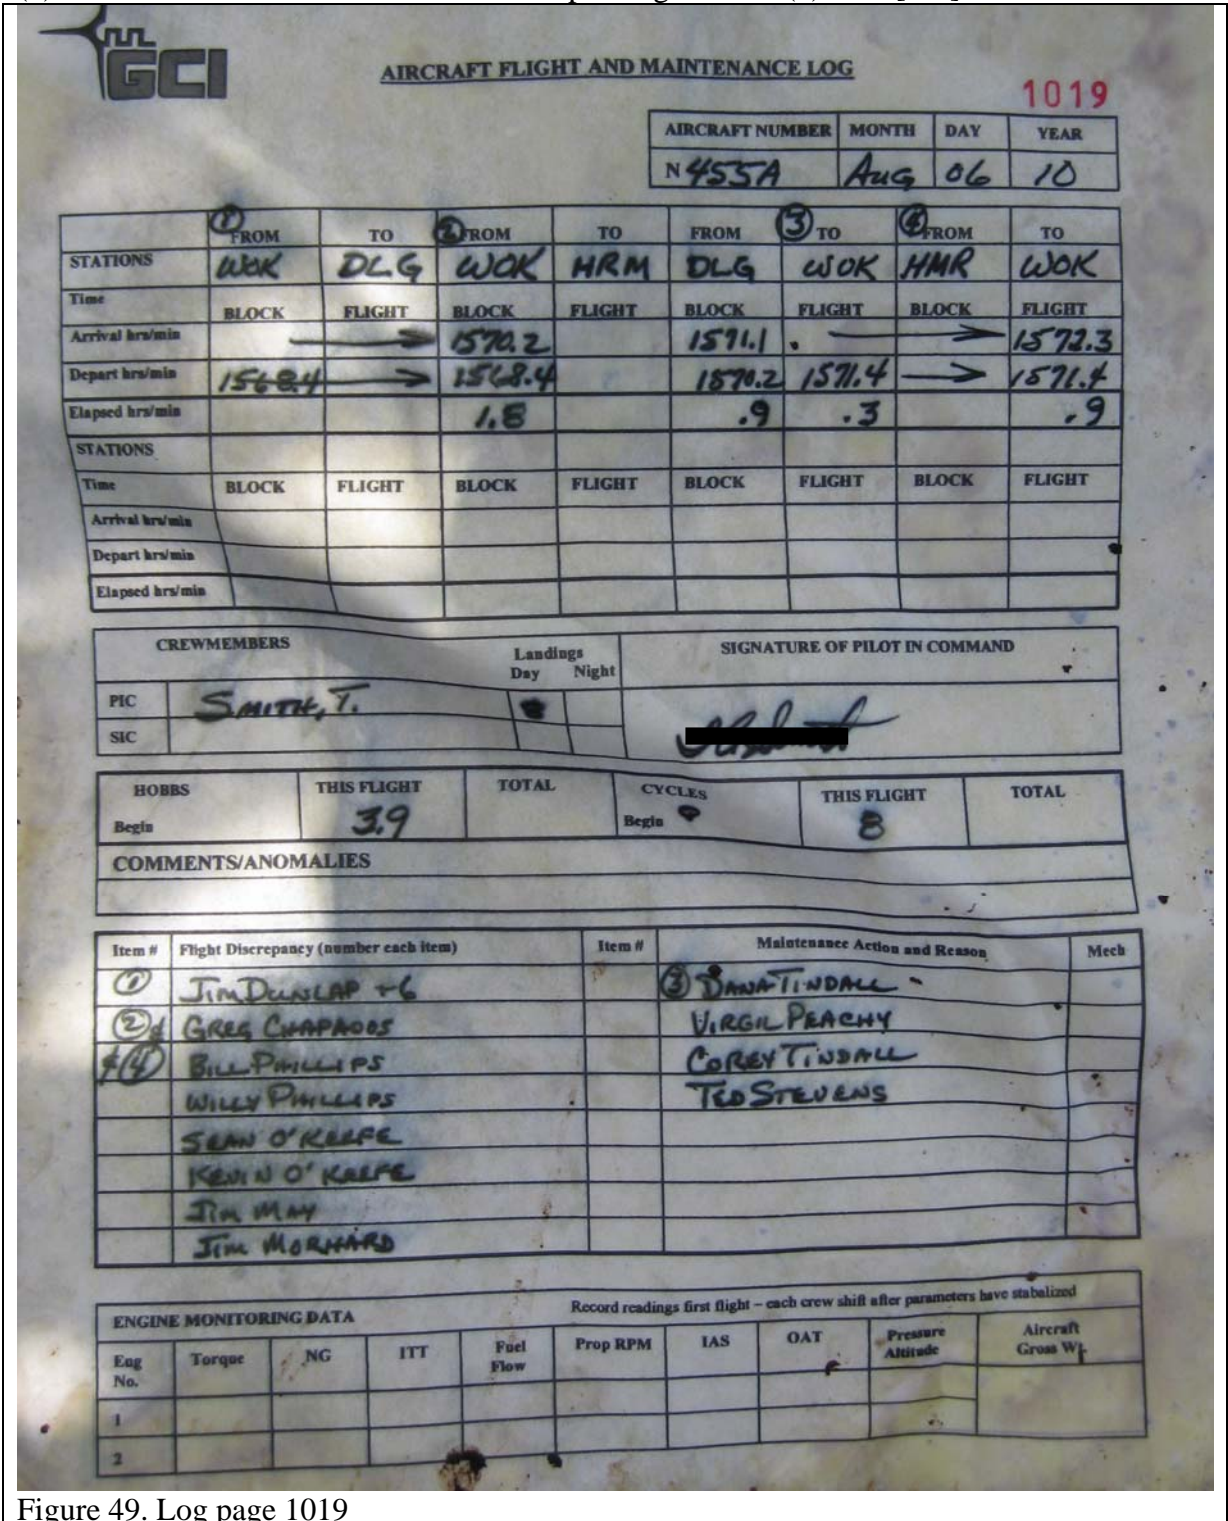 GCI
AIRCRAFT FLIGHT AND MAINTENANCE LOG
1019
AIRCRAFT NUMBER MONTH DAY YEAR
N 455A Aug 06 10
① FROM TO ② FROM TO FROM ③ TO ④ FROM TO
STATIONS WOK DLG WOK HRM DLG WOK HMR WOK
Time BLOCK FLIGHT BLOCK FLIGHT BLOCK FLIGHT BLOCK FLIGHT
Arrival hrs/min → 1570.2 1571.1 . → 1572.3
Depart hrs/min 1568.4 → 1568.4 1570.2 1571.4 → 1571.4
Elapsed hrs/min 1.8 .9 .3 .9
STATIONS
Time BLOCK FLIGHT BLOCK FLIGHT BLOCK FLIGHT BLOCK FLIGHT
Arrival hrs/min
Depart hrs/min
Elapsed hrs/min
CREWMEMBERS Landings SIGNATURE OF PILOT IN COMMAND
Day Night
PIC SMITH, T.
SIC
HOBBS THIS FLIGHT TOTAL CYCLES THIS FLIGHT TOTAL
Begin 3.9 Begin 8
COMMENTS/ANOMALIES
Item # Flight Discrepancy (number each item) Item # Maintenance Action and Reason Mech
① JIM DUNLAP +6 ③ DANA TINDALL
② & GREG CHAPADOS VIRGIL PEACHY
& ④ BILL PHILLIPS COREY TINDALL
WILLY PHILLIPS TED STEVENS
SEAN O'KEEFE
KEVIN O'KEEFE
JIM MAY
JIM MORHARD
ENGINE MONITORING DATA Record readings first flight – each crew shift after parameters have stabalized
Eng No. Torque NG ITT Fuel Flow Prop RPM IAS OAT Pressure Altitude Aircraft Gross Wt.
1
2
Figure 49. Log page 1019